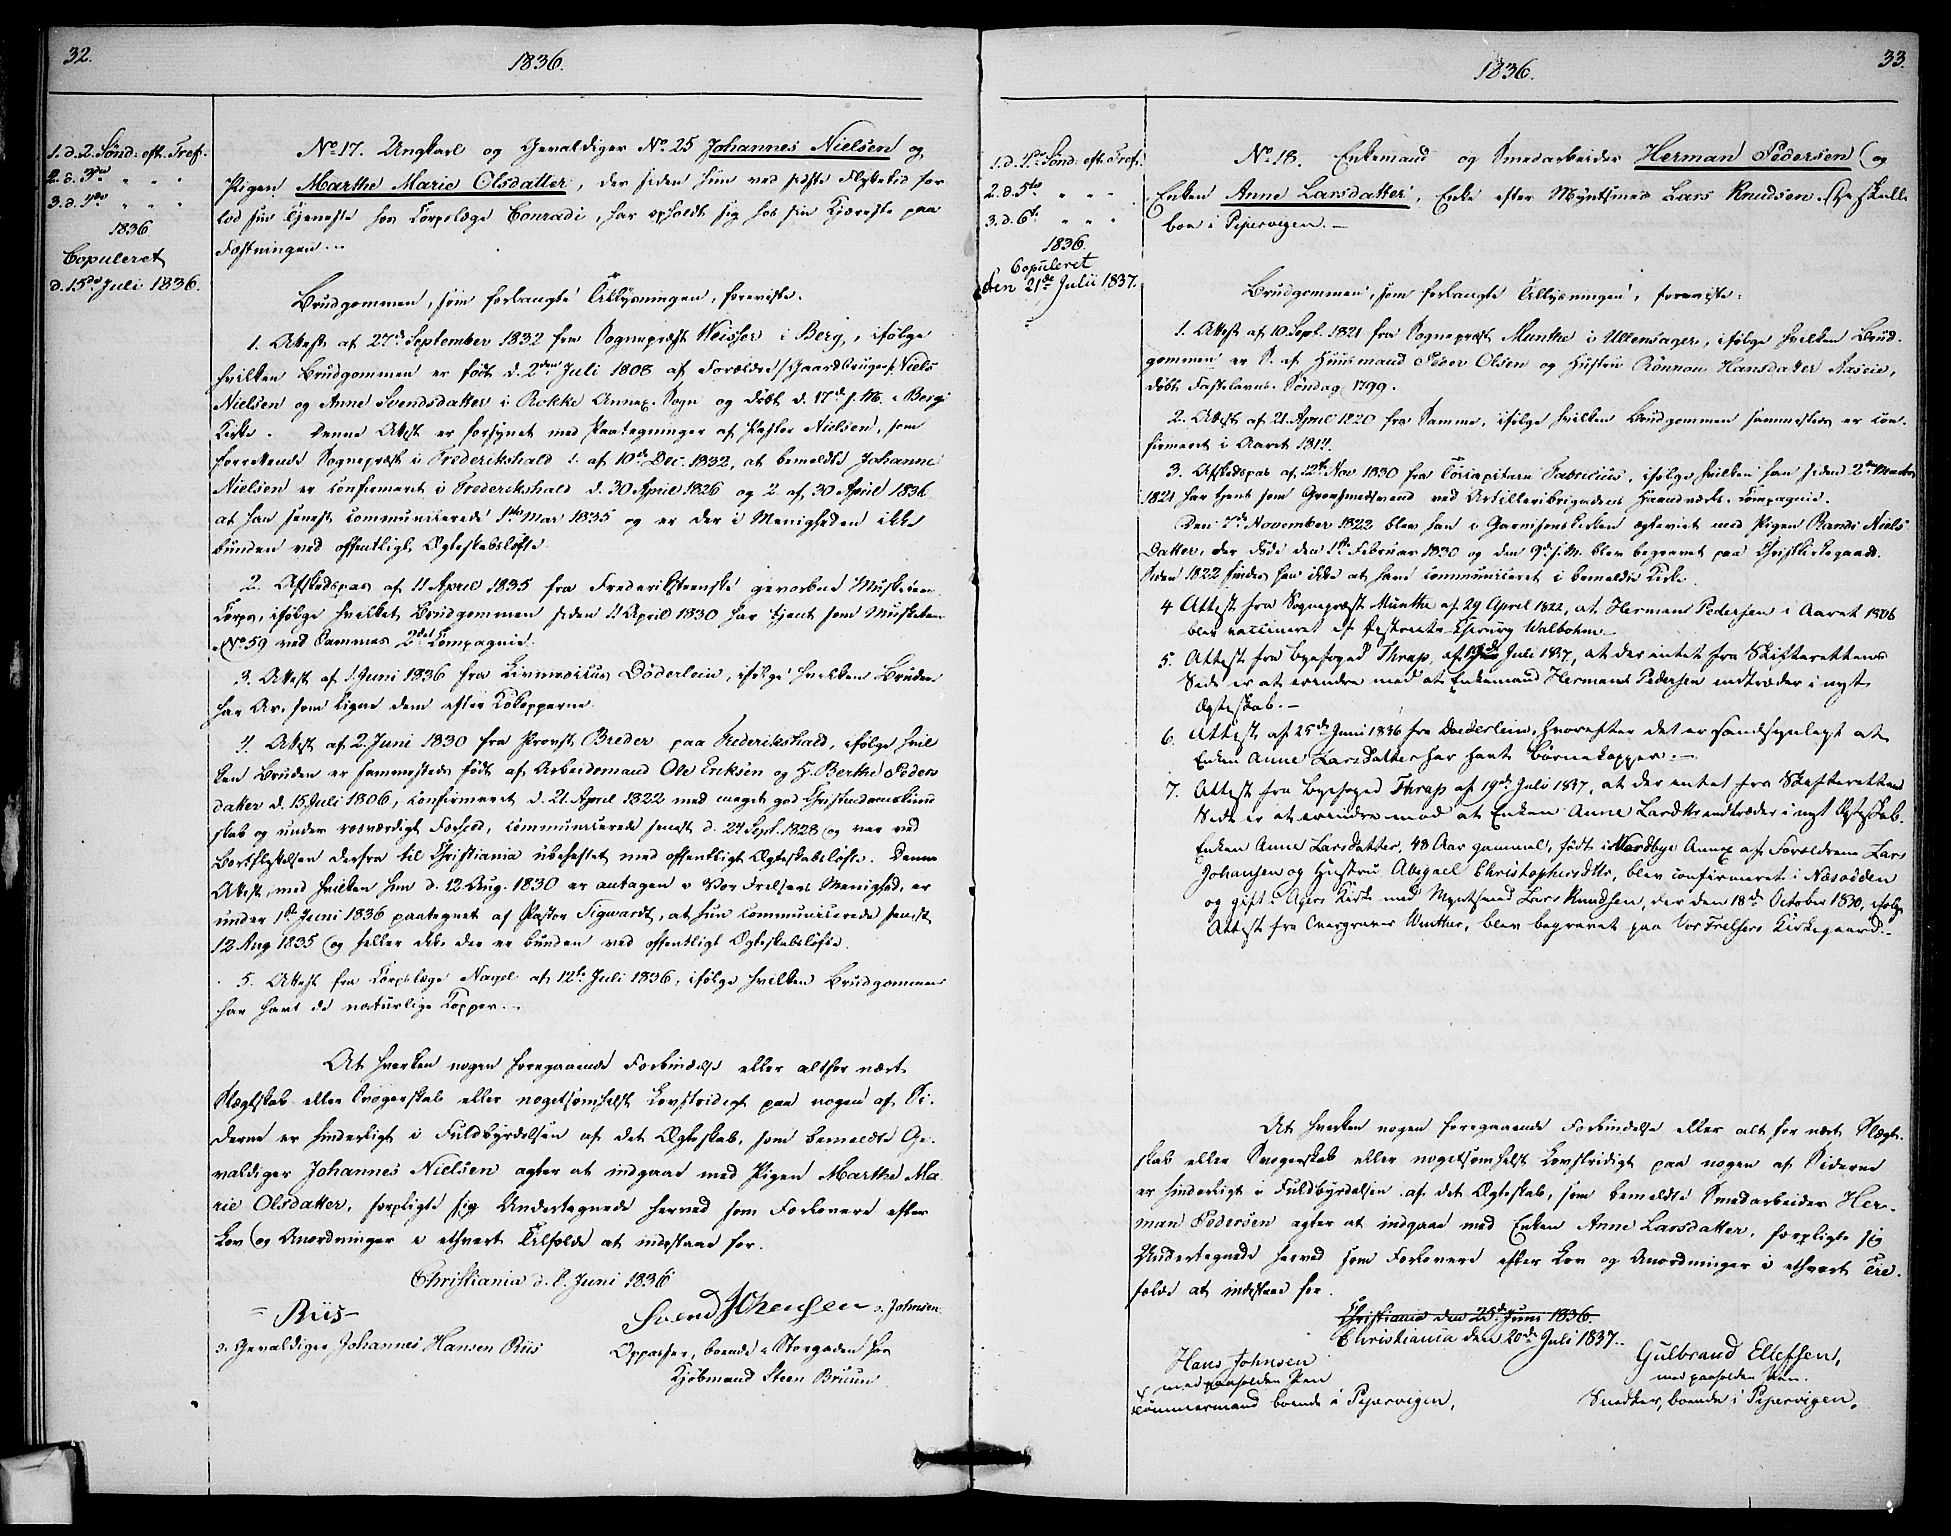 32.
1836.
1. d. 2. Sønd: eft. Tref.
2. d. 3die " " "
3. d. 4de " " "
1836
Copuleret
d. 15de Juli 1836.
No 17. Ungkarl og Gevaldiger No 25 Johannes Nielsen og
Pigen Marthe Marie Olsdatter, der siden hun ved sidste Flyttetid for
lod sin Tjeneste hos Corpslæge Conradi, har opholdt sig hos sin Kjæreste paa
Fæstningen.
Brudgommen, som forlangte Tillysningen, foreviste.
1. Attest af 27de September 1832 fra Sognepræst Weisser i Berg, ifølge
hvilken Brudgommen er født d. 2den Juli 1808 af Forældre /:Gaardbruger:/ Niels
Nielsen og Anne Svendsdatter i Rokke Annex-Sogn og døbt d. 17de s. M. i Berg
Kirke. Denne Attest er forsynet med Paategninger af Pastor Nielsen, som
forrettende Sognepræst i Frederikshald 1. af 10de Dec. 1832, at bemeldte Johannes
Nielsen er confirmeret i Frederikshald d. 30 April 1826 og 2 af 30 April 1836
at han senest communicerede 1ste Mar 1835 og er der i Menigheden ikke
bunden ved offentligt Ægteskabsløfte.
2. Afskedspas af 11 April 1835 fra Frederikssteenske gevorbne Musketeer
Corps, ifølge hvilket Brudgommen siden 11 April 1830 har tjent som Musketeer
No 59 ved Sammes 2det Compagnie.
3. Attest af 1 Juni 1836 fra Livmedicus Döderlein, ifølge hvilken Bruden
har Ar, som ligne dem efter Kokopperne.
4. Attest af 2 Juni 1830 fra Provst Breder paa Frederikshald, ifølge hvil
ken Bruden er sammesteds født af Arbeidsmand Ole Eriksen og H. Berthe Peders
datter d. 15 Juli 1806, confirmeret d. 21 April 1822 med meget god Christendomskund
skab og under roesværdigt Forhold, communicerede senest d. 24 Sept. 1828 og var ved
Bortflyttelsen derfra til Christiania ubeheftet med offentligt Ægteskabsløfte. Denne
Attest, med hvilken hun d. 12 Aug. 1830 er antagen i Vor Frelsers Menighed, er
under 1ste Juni 1836 paategnet af Pastor Sigwardt, at hun communicerede senest
12 Aug 1835 og heller ikke der er bunden ved offentligt Ægteskabsløfte.
5. Attest fra Corpslæge Nagel af 12te Juli 1836, ifølge hvilken Brudgommen
har havt de naturlige Kopper.
At hverken nogen foregaaende Forbindelse eller altfor nært
Slægtskab eller Svogerskab eller nogetsomhelst Lovstridigt paa nogen af Si-
derne er hinderligt i Fuldbyrdelsen af det Ægteskab, som bemeldte Ge-
valdiger Johannes Nielsen agter at indgaae med Pigen Marthe Ma
rie Olsdatter, forpligte sig Undertegnede herved som Forlovere efter
Lov og Anordninger i ethvert Tilfælde at indestaae for.
Christiania d. 8. Juni 1836
Riis
Svend Johensen ɔ: Johnsen
ɔ: Gevaldiger Johannes Hansen Riis
Oppasser, boende i Storgaden hos
Kjøbmand Steen Bruun
33.
1836.
1. d. 4de Sønd: eft. Tref:
2. d. 5te " " "
3. d. 6te " " "
1836.
Copuleret
den 21de Julii 1837.
No 18. Enkemand og Smedarbeider Herman Pedersen og
Enken Anne Larsdatter, Enke efter Myntsmed Lars Knudsen. De skulle
boe i Pipervigen.
Brudgommen, som forlangte Tillysningen, foreviste:
1. Attest af 10 Sept. 1821 fra Sognepræst Munthe i Ullensager, ifølge hvilken Brud-
gommen er S. af Huusmand Peder Olsen og Hustru Rønnou Hansdatter Aaseie,
døbt Fastelavns-Søndag 1799.
2. Attest af 21 April 1820 fra Samme, ifølge hvilken Brudgommen sammesteds er con-
firmeret i Aaret 1817.
3. Afskedspas af 12te Nov 1830 fra Torcapitain Fabricius, ifølge hvilken han siden 2den Marts
1821 har tjent som Grovsmedsvend ved Artilleribrigadens Haandværks-Compagnie.
Den 7de November 1822 blev han i Garnisonskirken ægteviet med Pigen Randi Niels
Datter, der døde den 1ste Februar 1830 og den 9de s. M. blev begravet paa Christkirkegaard.
Siden 1822 findes han ikke at have communiceret i bemeldte Kirke.
4 Attest fra Sognepræst Munthe af 29 April 1822, at Herman Pedersen i Aaret 1806
blev vaccineret af Districts-Chirurg Walbohm.
5. Attest fra Byefoged Thrap, af Juli 1837, at der intet fra Skifterettens
Side er at erindre mod at Enkemand Herman Pedersen indtræder i nyt
Ægteskab.
6. Attest af 25de Juni 1836 fra Døderlein, hvorefter det er sandsynligt at
Enken Anne Larsdatter har havt Børnekopper.
7. Attest fra Byefoged Thrap af 19de Juli 1837, at der intet fra Skifterettens
Side er at erindre mod at Enken Anne Larsdtr indtræder i nyt Ægteskab.
Enken Anne Larsdatter, 48 Aar gammel, født i Nordbye Annex af Forældrene Lars
Johansen og Hustru Abigael Christophersdtr, blev confirmeret i Næsodden
og gift i Agers Kirke med Myntsmed Lars Knudsen, der den 18de October 1830, ifølge
Attest fra Overgraver Winther, blev begravet paa Vor Frelsers Kirkegaard.
At hverken nogen foregaaende Forbindelse eller alt for nært Slægt-
skab eller Svogerskab eller nogetsomhelst Lovstridigt paa nogen af Siderne
er hinderligt i Fuldbyrdelsen af det Ægteskab, som bemeldte Smedarbeider Her-
man Pedersen agter at indgaae med Enken Anne Larsdatter, forpligte sig
Undertegnede herved som Forlovere efter Lov og Anordninger i ethvert Til-
fælde at indestaae for.
Christiania den 25de Juni 1836.
Christiania den 20de Juli 1837.
Hans Johnsen
med paaholden Pen
Tømmermand boende i Pipervigen,
Gulbrand Ellefsen,
med paaholden Pen.
Snedker, boende i Pipervigen.